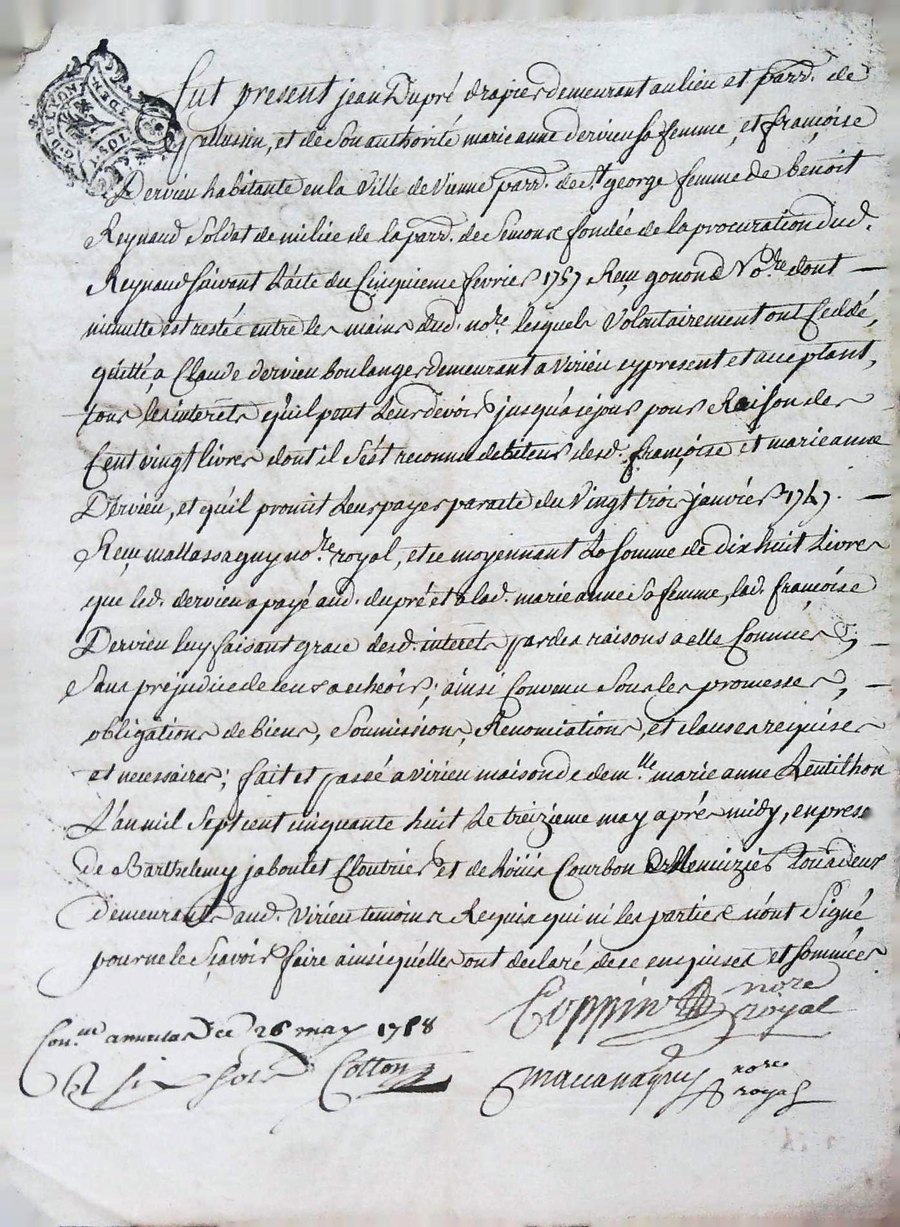 G. DE LYON
Fut present jean Dupré drapier demeurant au lieu et parr. de
Pellussin, et de Son authorité marie anne dervieu sa femme, et françoise
Dervieu habitante en la Ville de Vienne parr. de St. george femme de benoit
Reynaud Soldat de milice de la parr. de Semons fondée de la procuration dud.
Reynaud suivant L'acte du Cinquieme fevrier 1757 Reçu gonond Nore. dont
minutte est restée entre les mains dud. nore. lesquels Volontairement ont Ceddé,
quitté, a Claude dervieu boulanger demeurant a virieu cy present et acceptant,
tous les interets qu'il peut Leurs devoir jusqua ce jour pour Raison des
Cent vingt livres dont il s'est reconnu debiteur desd. françoise et marie anne
Dervieu, et qu'il promit Leur payer par acte du Vingt trois janvier 1747.
Reçu mallassagny nore. royal, et ce moyennant La Somme de dix huit Livres
que led. dervieu a payé aud. dupré et a lad. marie anne Sa femme, lad. françoise
Dervieu luy faisant grace desd. interet par des raisons a elle Connues,
Sans préjudice de ceux a echeoir; ainsi Convenu Sous les promesses,
obligations de biens, Soumissions, Renonciations, et clauses requises
et necessaires; fait et passé a virieu maison de demlle. marie anne Lentilhon
L'an mil Sept cent cinquante huit Le treizieme may aprés midy, en presce
de Barthelemy jaboulet Cloutrier et de Courbon
demeurants aud. Virieu temoins Requis qui ni les parties n'ont Signé
pour ne le Sçavoir faire ainsi qu'elles ont declaré de ce enquises et Sommées
Coppin nore
royal
Con.lle ce 26 may 1758
Cotton
nore
royal